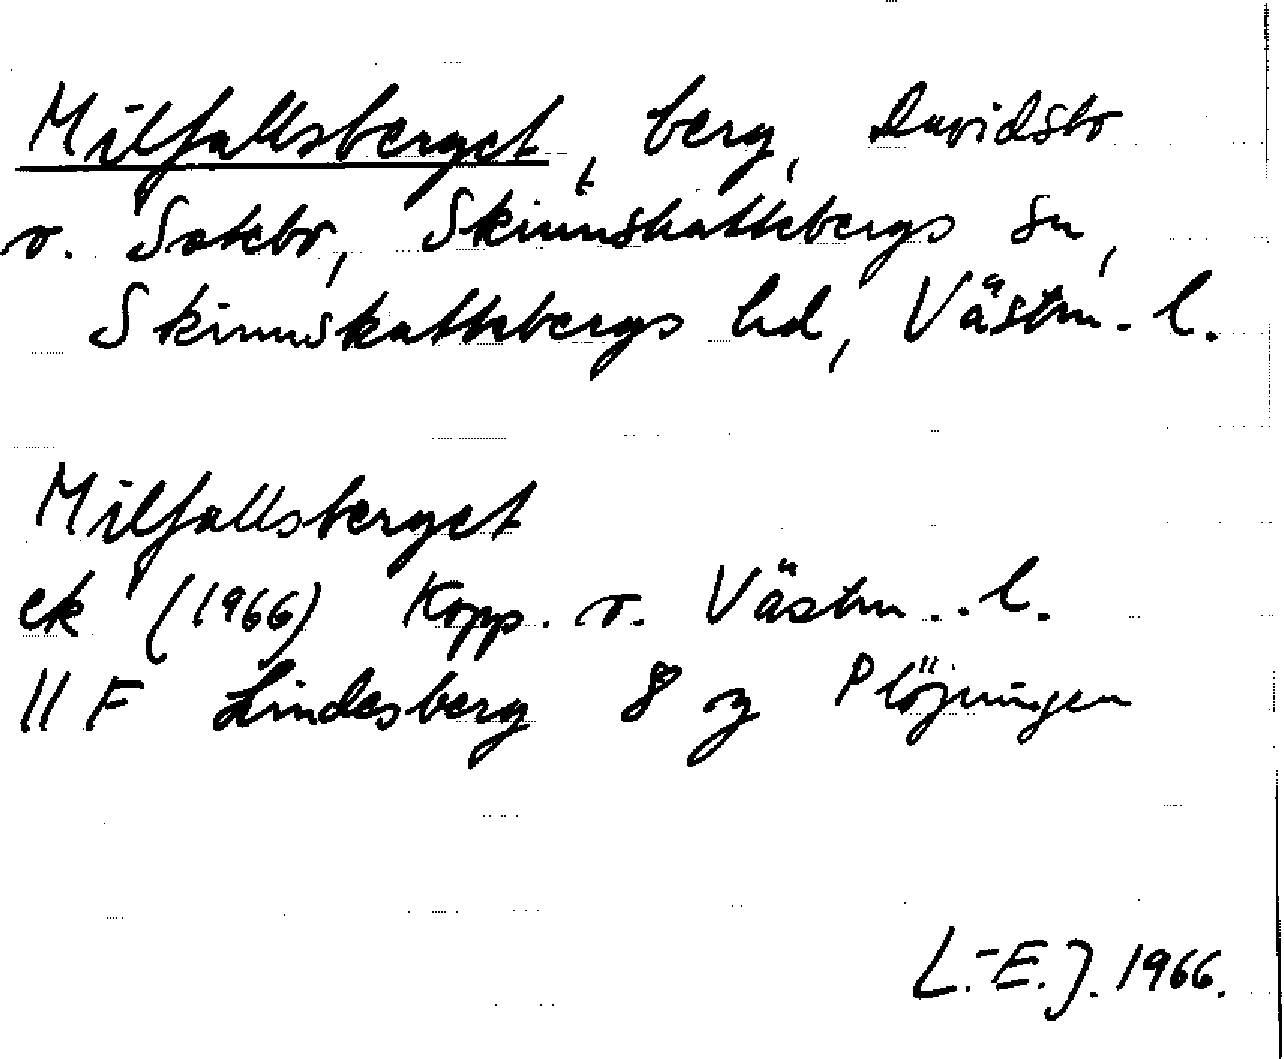 Milfallsberget, berg, Davidsbo
o. Satkbo, Skinnskattebergs sn,
Skinnskattebergs hd, Västm. l.
Milfallsberget
ek (1966) Kopp. o. Västm. l.
11 F Lindesberg 8 g Plöjningen
L.-E. J. 1966.